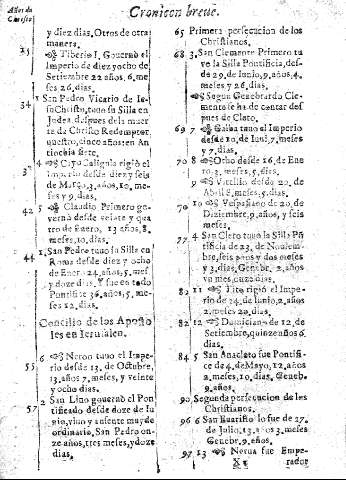 Años de Christo
Cronicon breue.
y diez dias. Otros de otra
manera.
25 3 Tiberio I. Gouernò el
Imperio de diez y ocho de
Setiembre 22 años, 6. me-
ses 26. dias.
34 1 San Pedro Vicario de Ie-
su Christo, tuuo su Silla en
Iudea, despues de la muer-
te de Christo Redemptor
nuestro, cinco años: en An-
tiochia siete.
4 Cayo Caligula rigiò el
Imperio desde diez y seis
de Março, 3. años, 10. me-
ses y 9. dias.
42 5 Claudio Primero go-
uernò desde veinte y qua-
tro de Enero, 13 años, 8.
meses, 10. dias.
44 1 San Pedro tuuo la Silla en
Roma desde diez y ocho
de Enero 24. años, 5. mes.
y doze dias. Y fue en todo
Pontifice 36. años, 5. me-
ses, 12. dias.
Concilio de los Aposto
les en Ierusalen.
55 6 Neron tuuo el Impe-
rio desde 13. de Octubre,
13. años, 7. meses, y veinte
y ocho dias.
57 2 San Lino gouernò el Pon-
tificado desde doze de Iu-
nio, viuo y ausente muy de
ordinario, San Pedro on-
ze años, tres meses, y doze
dias.
65 Primera persecucion de los
Christianos.
68 3 San Clemente Primero tu-
uo la Silla Pontificia, des-
de 29. de Iunio, 9. años, 4.
meses y 26. dias.
Segun Genebrardo Cle-
mente se ha de contar des-
pues de Cleto.
69 7 Galba tuuo el Imperio
desde 10. de Iuni, 7. meses
y 7. dias.
70 8 Otho desde 16. de Ene-
ro, 3. meses, 5. dias.
9 Vitelio desde 20. de
Abril 8. meses, 5. dias.
70 10 Vespasiano de 20. de
Diziembre, 9. años, y seis
meses.
77 4 San Cleto tuuo la Silla Pō
tificia de 23. de Nouiem-
bre, seis años y dos meses
y 3. dias, Genebr. 2. años
vn mes, onze dias.
82 11 Tito rigiò el Impe-
rio de 24. de Iunio, 2. años,
2. meses 20. dias.
82 12 Domiciano de 12. de
Setiembre, quinze años 6.
dias.
84 5 San Anacleto fue Pontifi-
ce de 4. de Mayo, 12. años
2. meses, 10. dias, Geneb.
9. años.
90 Segunda persecucion de los
Christianos.
96 6 San Euaristo lo fue de 27.
de Iulio, 13. años, 3. meses
Genebr. 9. años.
97 13 Nerua fue Em-
X 1 perador